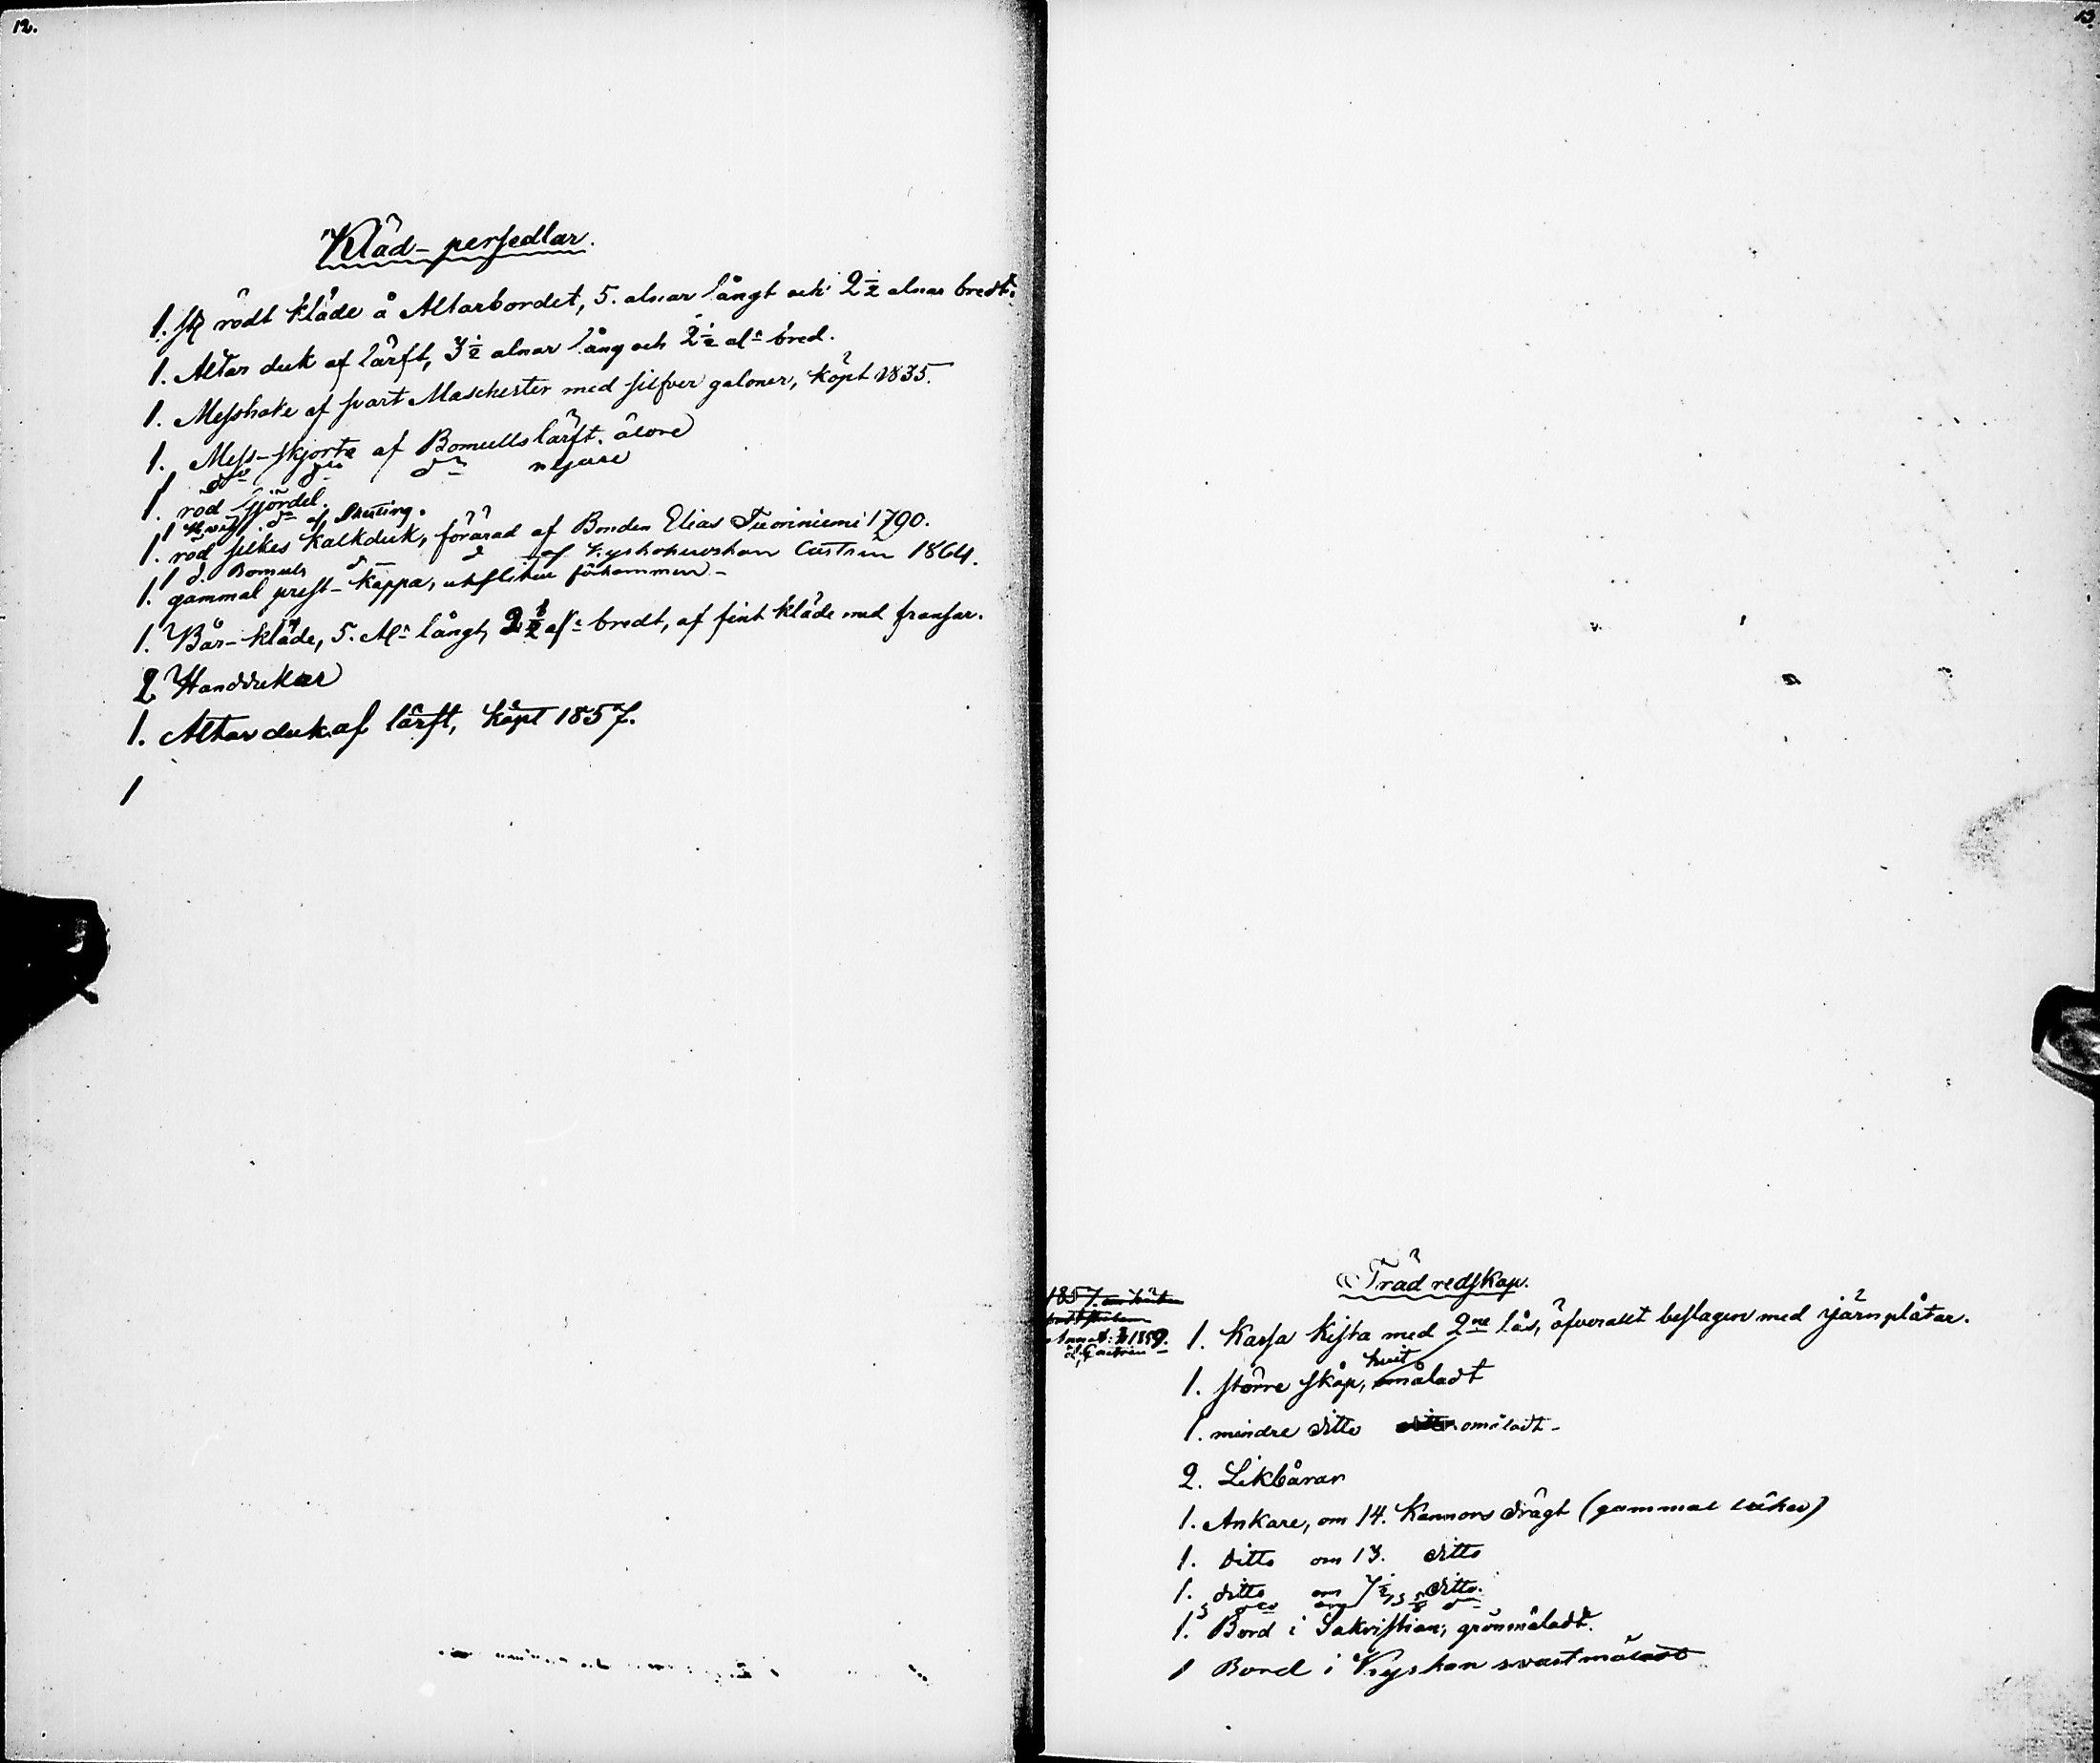 12.
Kläd-persedlar.
1. st rödt kläde å Altarbordet, 5. alnar långt och 2½ alnar bredt.
1. Altar duk af lärft, 3½ alnar lång och 2½ alr bred.
1. Messhake af svart Maschester med silfver galoner, köpt 1835.
1. Mess-skjorta af Bomullslärft. äldre
1 dito do do nyare
1. röd Gjördel.
1 do af Skirting.
1. röd silkes Kalkduk, förärad af Bonden Elias Tuoriniemi 1790.
1 d. Bomuls d d af Kyrkoherdskan Castrén 1864.
1. gammal prest-Kappa, utsliten förkommen-
1. Bår-kläde, 5. Alr långt, 2½ alr bredt, af fint kläde med fransar.
2 Handdukar
1. Altar duk af lärft, köpt 1857.
1
13.
Träd redskap.
1857.
1859.
Castrén
1. Kassa Kista med 2ne lås, öfverallt beslagen med järnplåtar.
hvit
1. större skåp, omåladt
1. mindre ditto ditto omåladt-
2. Likbårar
1. Ankare, om 14. Kannors drägt (gammal läker)
1. Ditto om 13. ditto
1. ditto om 7½ ditto.
1. Bord i Sakristian, grönmåladt.
1 Bord i Kyrkan svartmåladt